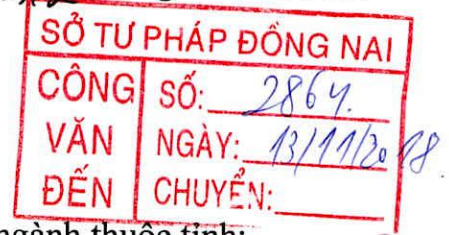 SỞ TƯ PHÁP ĐỒNG NAI
CÔNG VĂN ĐẾN
SỐ: 2864.
NGÀY: 13/11/2018.
CHUYỂN:
ngành thuộc tỉnh: